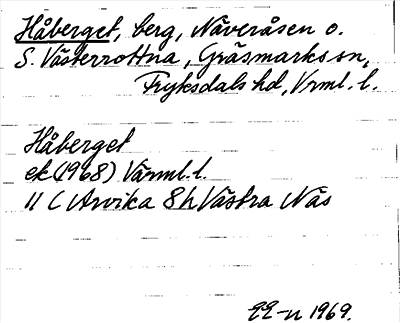 Håberget, berg, Nåveråsen o.
S. Västerrottna, Gräsmarks sn,
Fryksdals hd, Vrml. l.
Håberget
ek (1968) Värml. l.
11 C Arvika 8h Västra Näs
1969.